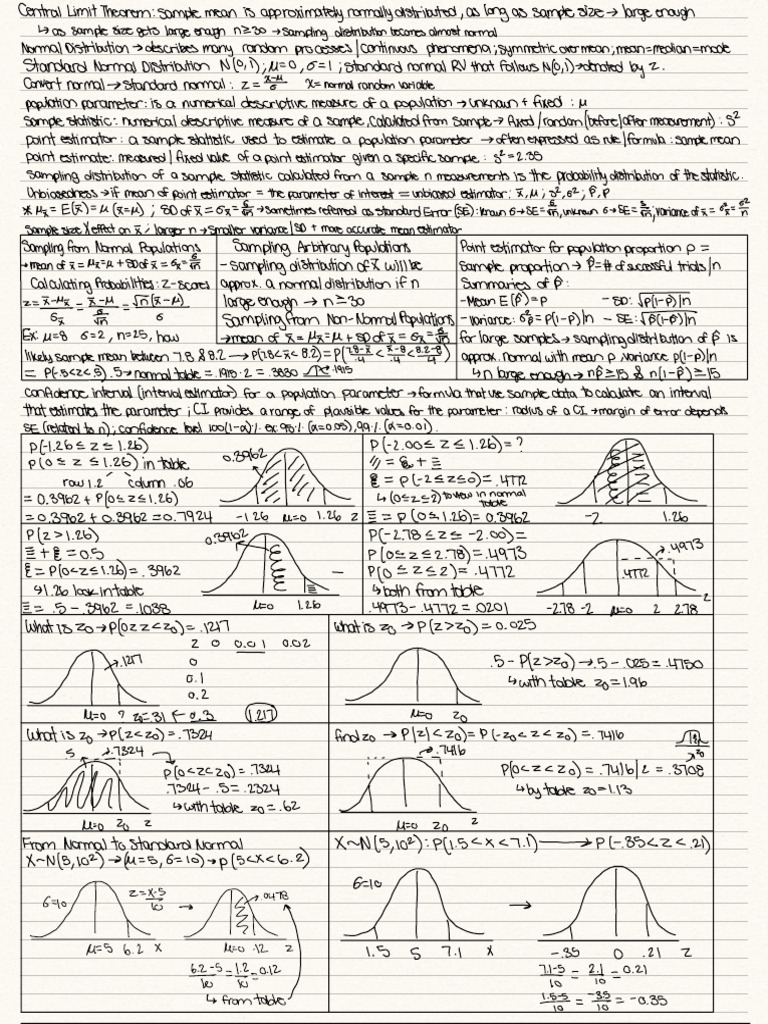 Central Limit Theorem: sample mean is approximately normally distributed, as long as sample size → large enough
↳ as sample size gets large enough n≥30 → sampling distribution becomes almost normal
Normal Distribution → describes many random processes/continuous phenomena; symmetric over mean; mean=median=mode
Standard Normal Distribution N(0,1); μ=0, σ=1; Standard normal RV that follows N(0,1) → denoted by z.
Convert normal → standard normal: z = x-μ/σ X=normal random variable
population parameter: is a numerical descriptive measure of a population → unknown + fixed: μ
Sample statistic: numerical descriptive measure of a sample, calculated from sample → fixed/random (before/after measurement): S²
point estimator: a sample statistic used to estimate a population parameter → often expressed as rule/formula: sample mean
point estimate: measured/fixed value of a point estimator given a specific sample: s²=2.35
Sampling distribution of a sample statistic calculated from a sample n measurements is the probability distribution of the statistic.
Unbiasedness → if mean of point estimator = the parameter of interest = unbiased estimator: x̄, μ; s², σ²; p̂, p
* μx̄ = E(x̄) = μ (x̄=μ); SD of x̄ = σx̄ = σ/√n → sometimes referred as standard Error (SE): known σ → SE = σ/√n, unknown σ → SE = s/√n; variance of x̄ = σ²x̄ = σ²/n
Sample size X effect on x̄: larger n → smaller variance/SD + more accurate mean estimator
Sampling from Normal Populations
→ mean of x̄ = μx̄ = μ + SD of x̄ = σx̄ = σ/√n
Calculating Probabilities: z-scores
z = x̄-μx̄/σx̄ = x̄-μ/(σ/√n) = √n(x̄-μ)/σ
Ex: μ=8 σ=2, n=25, how
likely sample mean between 7.8 & 8.2 → P(7.8<x̄<8.2) = P(7.8-x̄/.4 < x̄-8/.4 < 8.2-8/.4)
= P(-.5<z<.5) .5 → normal table = .1915·2 = .3830 .1915
Sampling Arbitrary Populations
- sampling distribution of x̄ will be
approx. a normal distribution if n
large enough → n≥30
Sampling from Non-Normal Populations
→ mean of x̄ = μx̄ = μ + SD of x̄ = σx̄ = σ/√n
Point estimator for population proportion p =
Sample proportion → p̂ = # of successful trials/n
Summaries of p̂:
- Mean E(p̂)=p - SD: √p(1-p)/n
- variance: σ²p̂ = p(1-p)/n - SE: √p̂(1-p̂)/n
for large samples → sampling distribution of p̂ is
approx. normal with mean p variance p(1-p)/n
↳ n large enough → np̂≥15 & n(1-p̂)≥15
Confidence interval (interval estimator) for a population parameter → formula that use sample data to calculate an interval
that estimates the parameter; CI provides a range of plausible values for the parameter: radius of a CI → margin of error depends
SE (related to n); confidence level 100(1-α)% ex: 95% (α=0.05), 99% (α=0.01).
P(-1.26≤z≤1.26)
P(0≤z≤1.26) in table
row 1.2 column .06
= 0.3962 + P(0≤z≤1.26)
= 0.3962 + 0.3962 = 0.7924
0.3962
-1.26 μ=0 1.26 z
P(-2.00≤z≤1.26)=?
= P(-2≤z≤0) = .4772
↳ (0≤z≤2) to view in normal table
= P(0≤1.26) = 0.3962
-2 1.26
P(z>1.26)
= 0.5
= P(0<z≤1.26) = .3962
↳ 1.26 look in table
= .5 - .3962 = .1038
0.3962
μ=0 1.26
P(-2.78≤z≤-2.00)=
P(0≤z≤2.78) = .4973
P(0≤z≤2) = .4772
↳ both from table
.4973-.4772=.0201
.4973
.4772
-2.78 -2 μ=0 2 2.78 z
What is z₀ → P(0≤z<z₀) = .1217
.1217
z 0 0.01 0.02
0
0.1
0.2
μ=0 ? z₀=.31 ← 0.3 1.217
What is z₀ → P(z>z₀) = 0.025
.5 - P(z>z₀) → .5 - .025 = .4750
↳ with table z₀=1.96
μ=0 z₀
What is z₀ → P(z<z₀) = .7324
.5 .7324
P(0<z<z₀) = .7324
.7324 - .5 = .2324
↳ with table z₀ = .62
μ=0 z₀ z
find z₀ → P(|z|<z₀) = P(-z₀<z<z₀) = .7416
.7416
z₀
P(0<z<z₀) = .7416/2 = .3708
↳ by table z₀=1.13
μ=0 z₀
From Normal to Standard Normal
X~N(5,10²) → (μ=5, σ=10) → P(5<x<6.2)
σ=10
z = x-5/10 →
.0478
μ=5 6.2 x
μ=0 .12 z
6.2-5/10 = 1.2/10 = 0.12
↳ from table
X~N(5,10²): P(1.5<x<7.1) → P(-.35<z<.21)
σ=10
→
1.5 5 7.1 x
-.35 0 .21 z
7.1-5/10 = 2.1/10 = 0.21
1.5-5/10 = -3.5/10 = -0.35